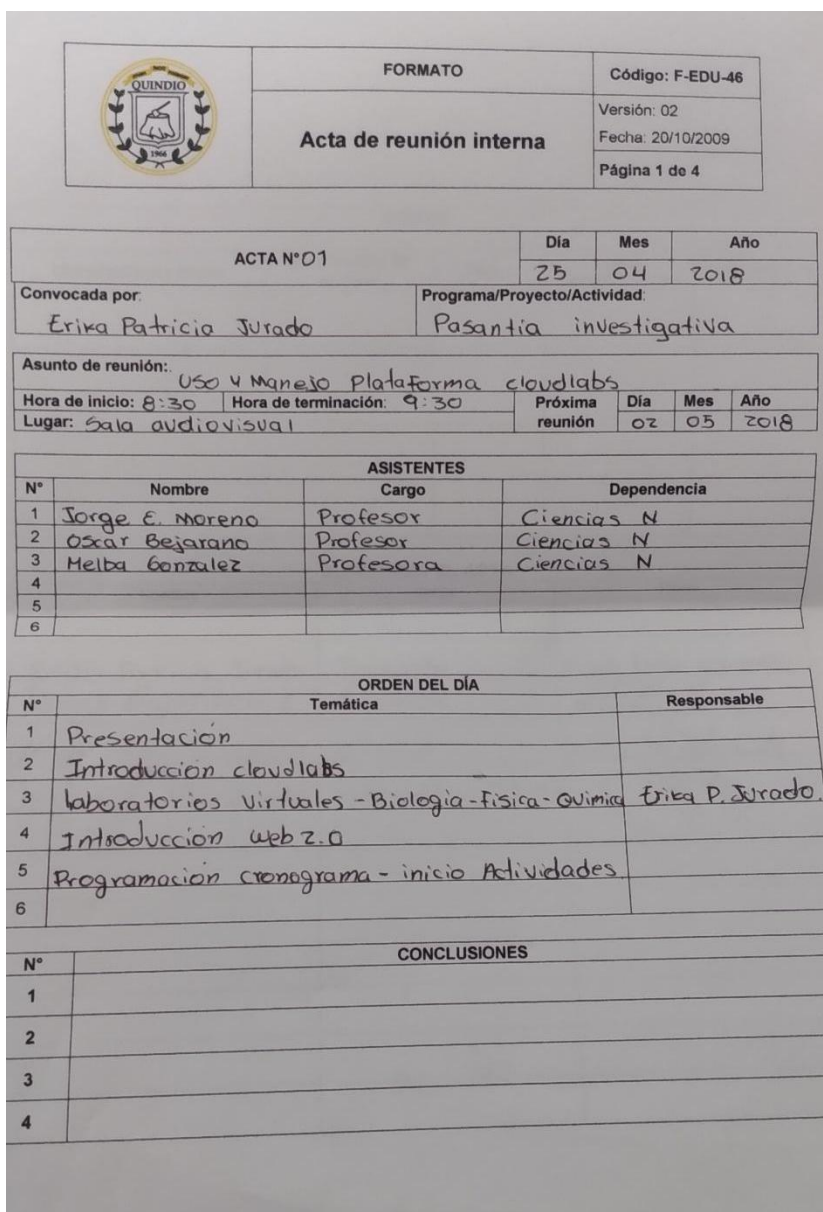 QUINDIO
1966
FORMATO
Código: F-EDU-46
Acta de reunión interna
Versión: 02
Fecha: 20/10/2009
Página 1 de 4
ACTA N°01
Día Mes Año
25 04 2018
Convocada por: Programa/Proyecto/Actividad:
Erika Patricia Jurado Pasantia investigativa
Asunto de reunión:.
Uso y Manejo Plataforma cloudlabs
Hora de inicio: 8:30 Hora de terminación: 9:30 Próxima reunión Día Mes Año
Lugar: Sala audiovisual 02 05 2018
ASISTENTES
N° Nombre Cargo Dependencia
1 Jorge E. Moreno Profesor Ciencias N
2 Oscar Bejarano Profesor Ciencias N
3 Melba Gonzalez Profesora Ciencias N
4
5
6
ORDEN DEL DÍA
N° Temática Responsable
1 Presentación
2 Introducción cloudlabs
3 laboratorios virtuales - Biologia - fisica - Quimica Erika P. Jurado.
4 Introducción web 2.0
5 Programacion cronograma - inicio Actividades.
6
N° CONCLUSIONES
1
2
3
4